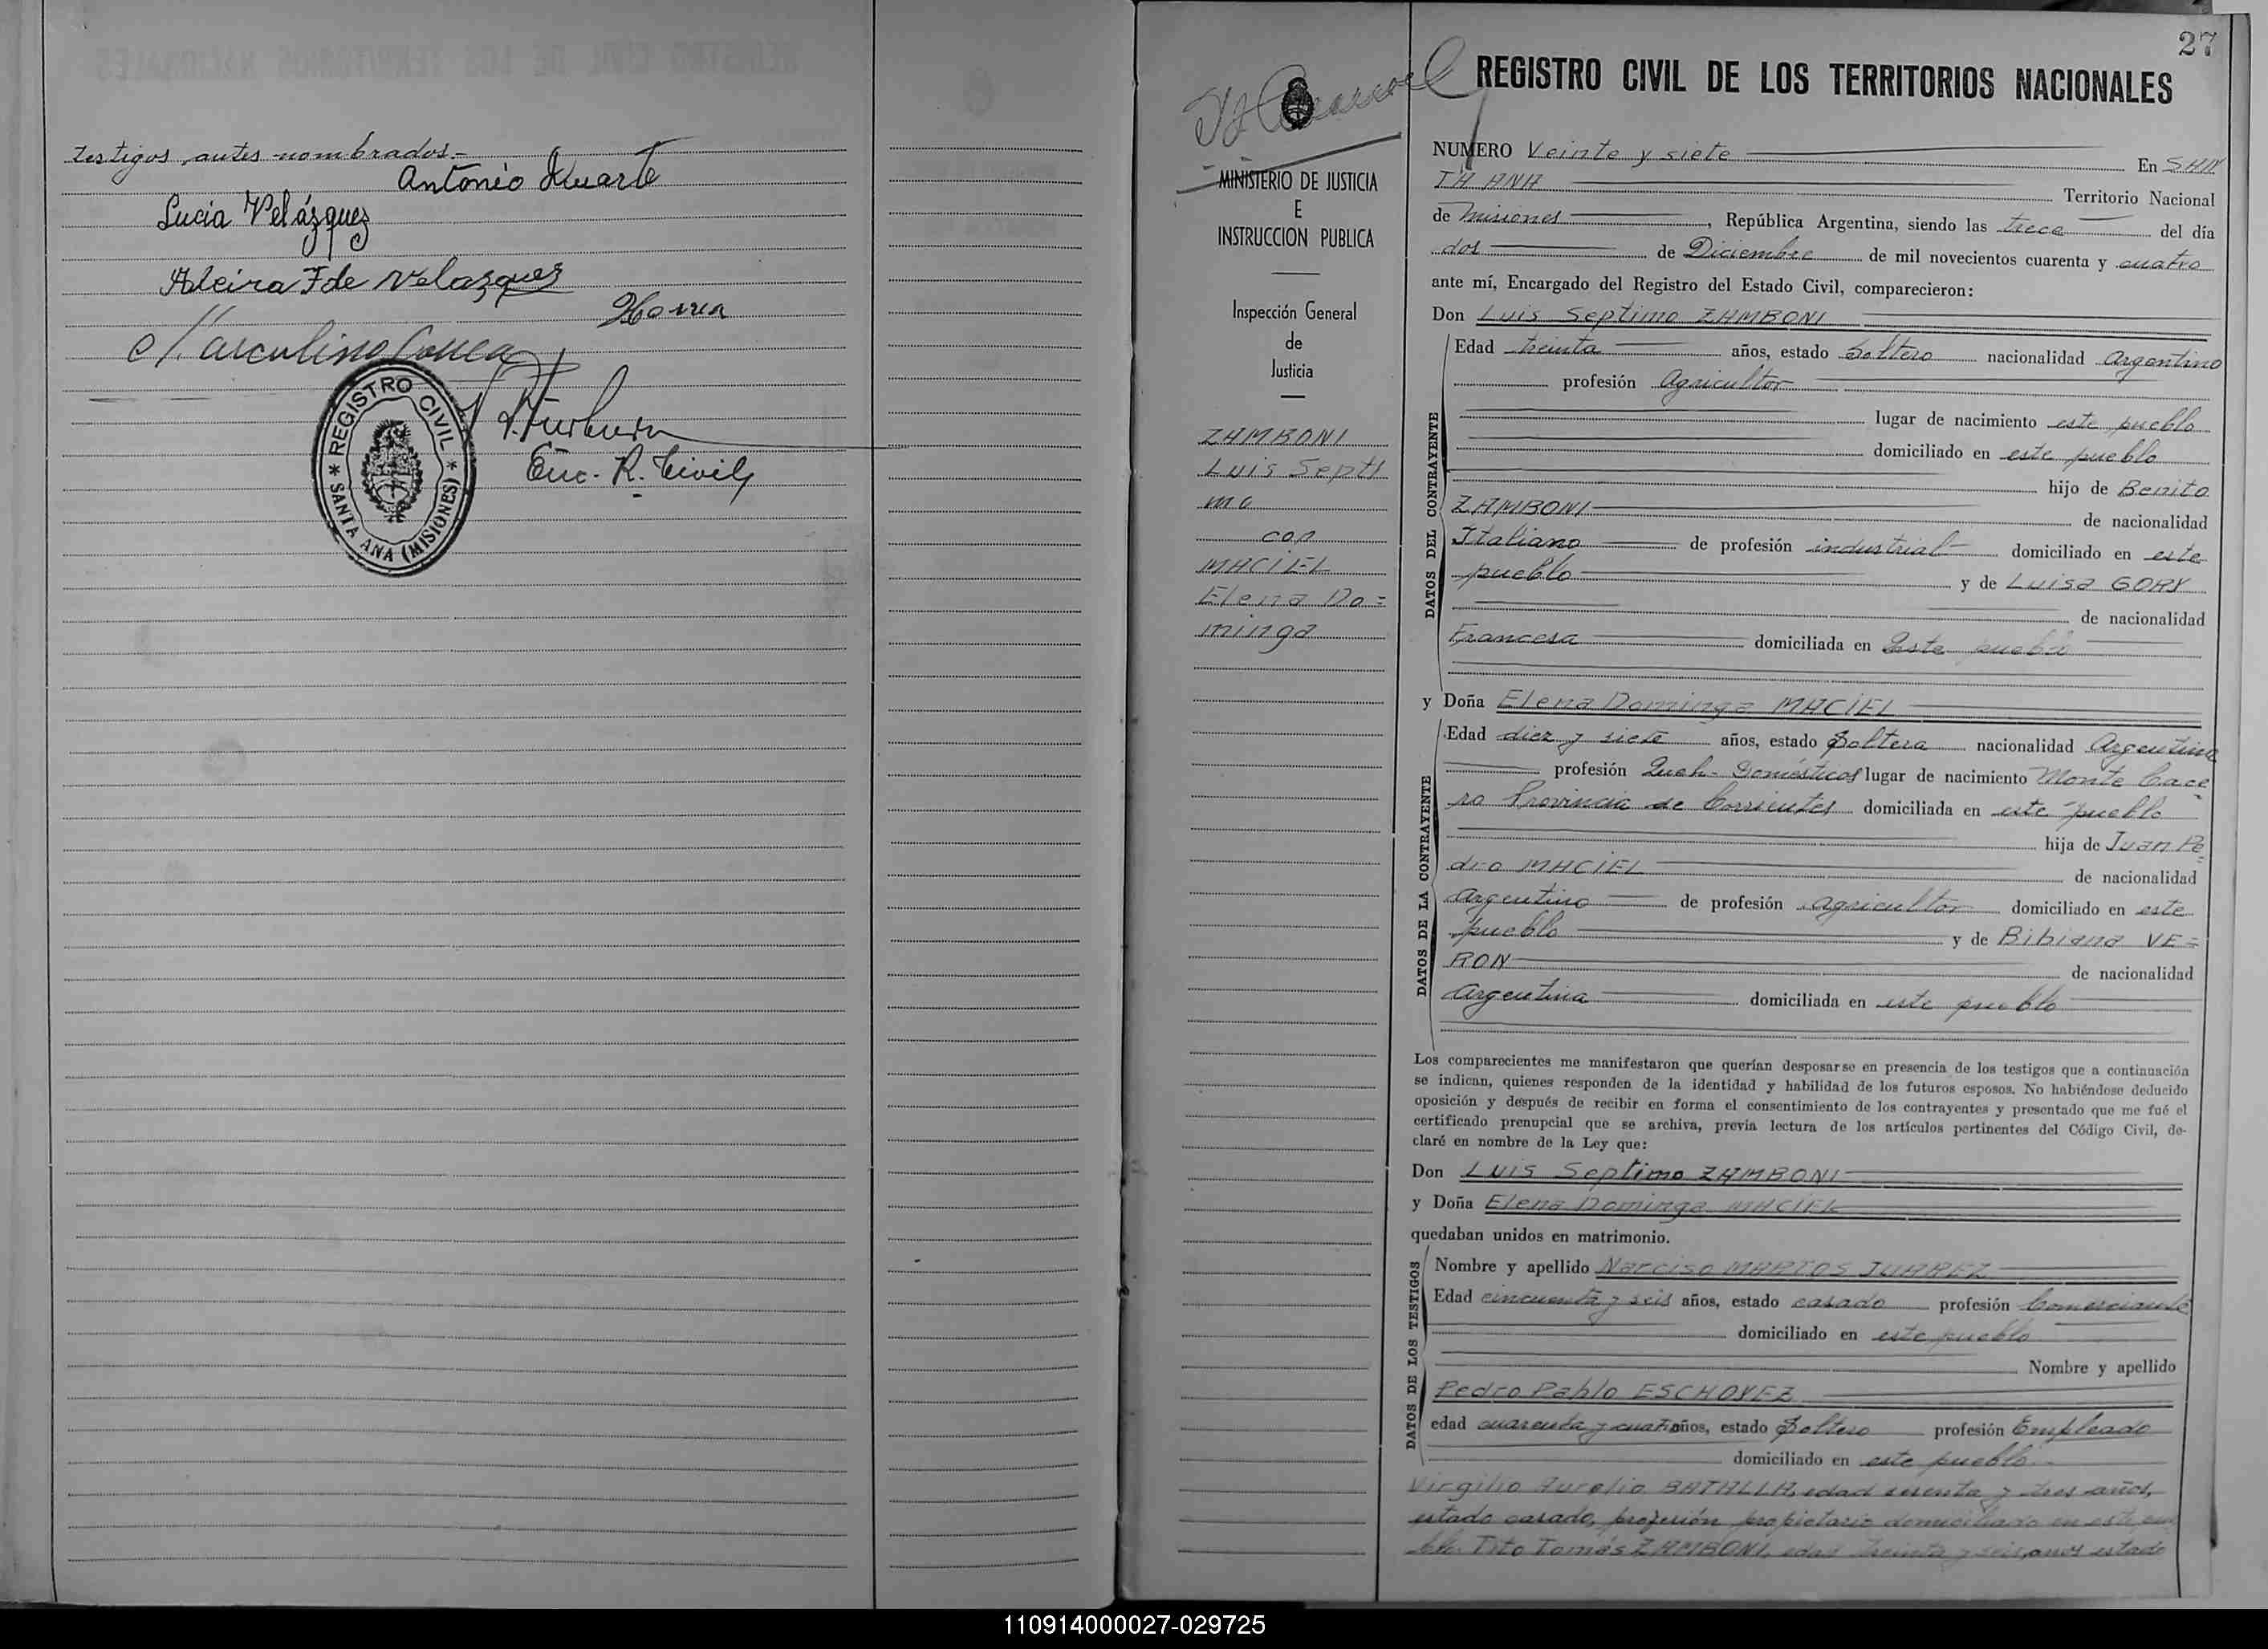 testigos, antes nombrados.-
Antonio Duarte
Lucia Velázquez
Alcira F de Velazquez
Marculino Correa
Enc. R. Civil
* REGISTRO CIVIL * SANTA ANA (MISIONES)
27
REGISTRO CIVIL DE LOS TERRITORIOS NACIONALES
MINISTERIO DE JUSTICIA
E
INSTRUCCION PUBLICA
Inspección General
de
Justicia
ZAMBONI
Luis Septi
mo
con
MACIEL
Elena Do=
minga
NUMERO Veinte y siete En SAN
TA ANA Territorio Nacional
de Misiones, República Argentina, siendo las trece del día
dos de Diciembre de mil novecientos cuarenta y cuatro
ante mí, Encargado del Registro del Estado Civil, comparecieron:
Don Luis Septimo ZAMBONI
DATOS DEL CONTRAYENTE
Edad treinta años, estado Soltero nacionalidad Argentino
profesión Agricultor
lugar de nacimiento este pueblo
domiciliado en este pueblo
hijo de Benito
ZAMBONI de nacionalidad
Italiano de profesión industrial domiciliado en este
pueblo y de Luisa GORY
de nacionalidad
Francesa domiciliada en Este pueblo
y Doña Elena Dominga MACIEL
DATOS DE LA CONTRAYENTE
Edad diez y siete años, estado Soltera nacionalidad Argentina
profesión Queh. Domésticos lugar de nacimiento Monte Cace
ro Provincia de Corrientes domiciliada en este pueblo
hija de Juan Pe
dro MACIEL de nacionalidad
Argentino de profesión agricultor domiciliado en este
pueblo y de Bibiana VE=
RON de nacionalidad
Argentina domiciliada en este pueblo
Los comparecientes me manifestaron que querían desposarse en presencia de los testigos que a continuación
se indican, quienes responden de la identidad y habilidad de los futuros esposos. No habiéndose deducido
oposición y después de recibir en forma el consentimiento de los contrayentes y presentado que me fué el
certificado prenupcial que se archiva, previa lectura de los artículos pertinentes del Código Civil, de-
claré en nombre de la Ley que:
Don Luis Septimo ZAMBONI
y Doña Elena Dominga MACIEL
quedaban unidos en matrimonio.
DATOS DE LOS TESTIGOS
Nombre y apellido Narciso MARTOS JUAREZ
Edad cincuenta y seis años, estado casado profesión Comerciante
domiciliado en este pueblo
Nombre y apellido
Pedro Pablo ESCHOYEZ
edad cuarenta y cuatro años, estado Soltero profesión Empleado
domiciliado en este pueblo
Virgilio Aurelio BATALLA, edad sesenta y tres años,
estado casado, profesión propietario domiciliado en este pue
blo. Tito Tomás ZAMBONI, edad treinta y seis años estado
110914000027-029725